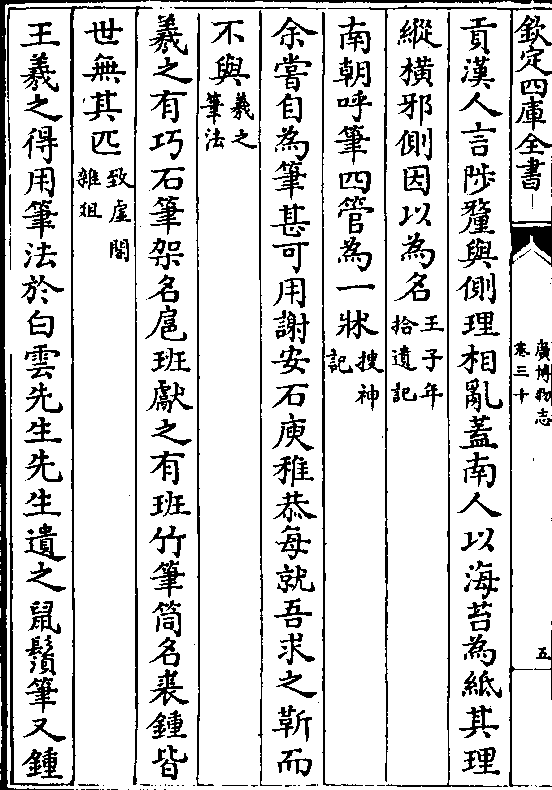 欽定四庫全書
廣博物志
卷三十
五
貢漢人言陟釐與側理相亂蓋南人以海苔為紙其理
縱橫邪側因以為名王子年拾遺記
南朝呼筆四管為一牀搜神記
余嘗自為筆甚可用謝安石庾稚恭每就吾求之靳而
不與羲之筆法
羲之有巧石筆架名扈班獻之有班竹筆筒名裘鍾皆
世無其匹致虛閣雜俎
王羲之得用筆法於白雲先生先生遺之鼠鬚筆又鍾